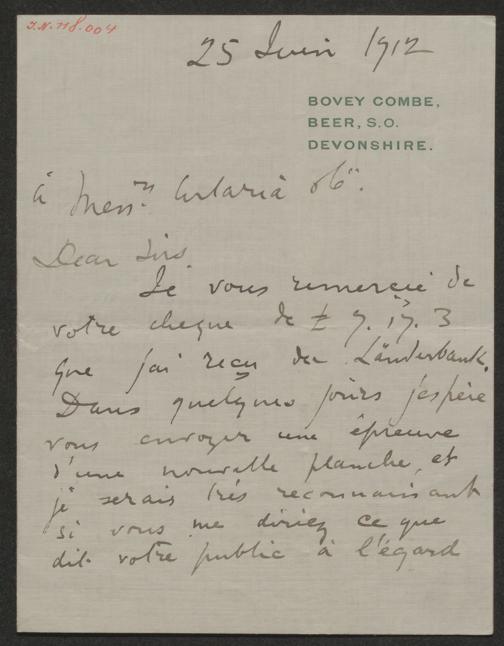 I.N. 718.004
25 Juin 1912
BOVEY COMBE,
BEER, S.O.
DEVONSHIRE.
à Messrs Artaria & Co.
Dear Sirs
Je vous remercie de
votre cheque de £ 7. 17. 3
que j'ai reçu du Länderbank.
Dans quelques jours j'espère
vous envoyer une épreuve
d'une nouvelle planche, et
je serais très reconnaissant
si vous me diriez ce que
dit votre public à l'égard